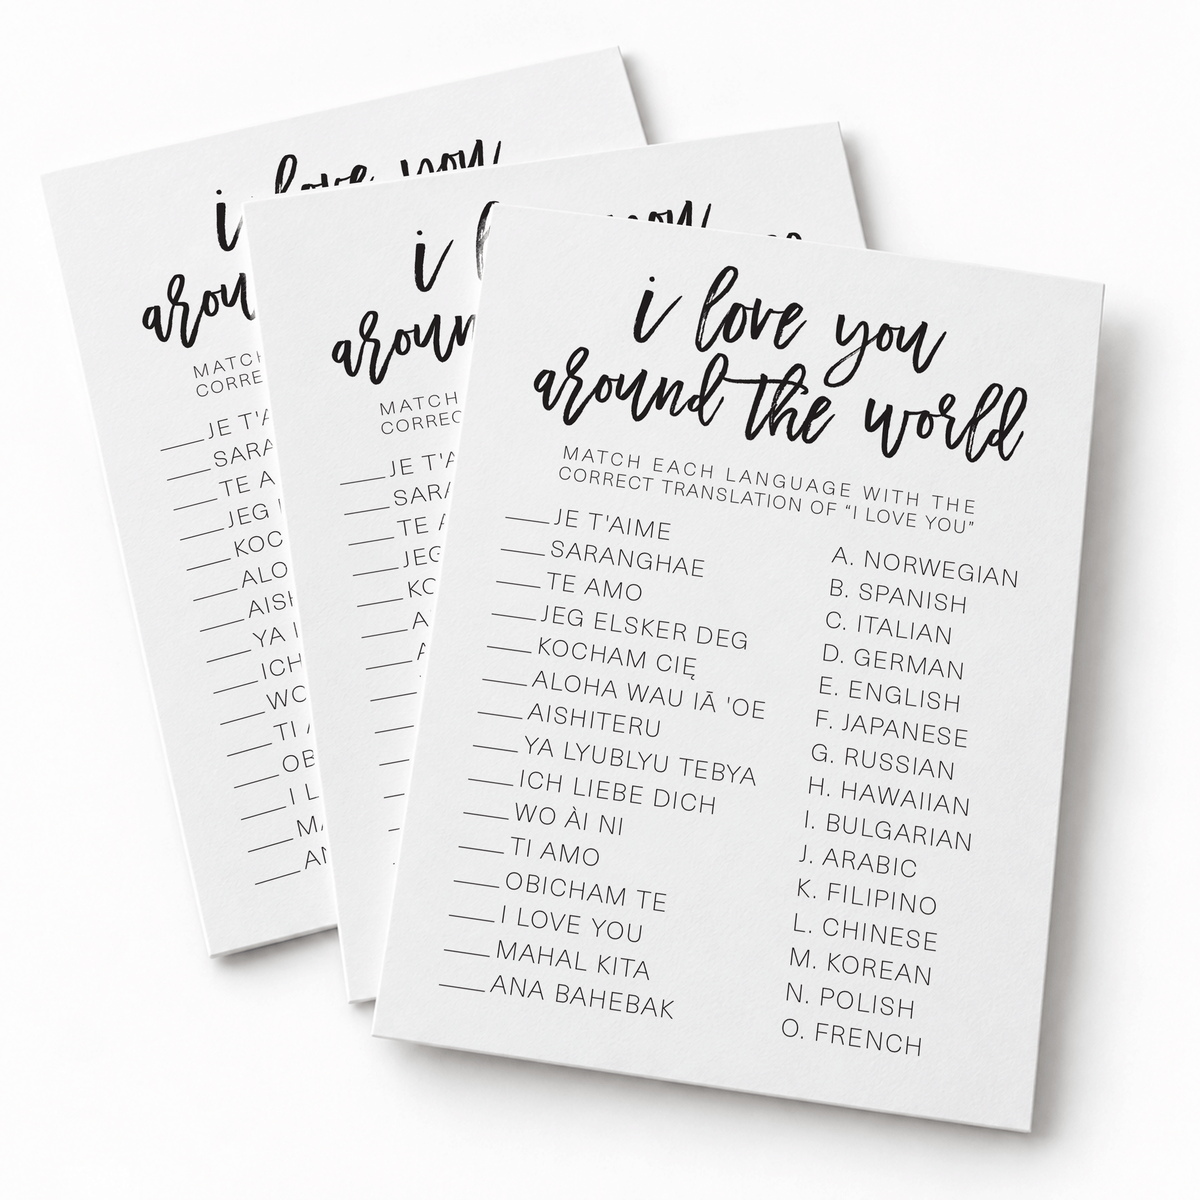 i love you
around the world
MATCH EACH LANGUAGE WITH THE
CORRECT TRANSLATION OF “I LOVE YOU”
___JE T'AIME
___SARANGHAE
___TE AMO
___JEG ELSKER DEG
___KOCHAM CIĘ
___ALOHA WAU IĀ 'OE
___AISHITERU
___YA LYUBLYU TEBYA
___ICH LIEBE DICH
___WO ÀI NI
___TI AMO
___OBICHAM TE
___I LOVE YOU
___MAHAL KITA
___ANA BAHEBAK
A. NORWEGIAN
B. SPANISH
C. ITALIAN
D. GERMAN
E. ENGLISH
F. JAPANESE
G. RUSSIAN
H. HAWAIIAN
I. BULGARIAN
J. ARABIC
K. FILIPINO
L. CHINESE
M. KOREAN
N. POLISH
O. FRENCH